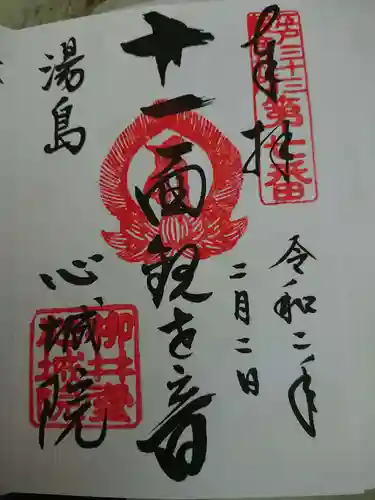 奉拝
江戸三十三第七番
令和二年
二月二日
十一面観世音
湯島
心城院
柳井堂
心城院